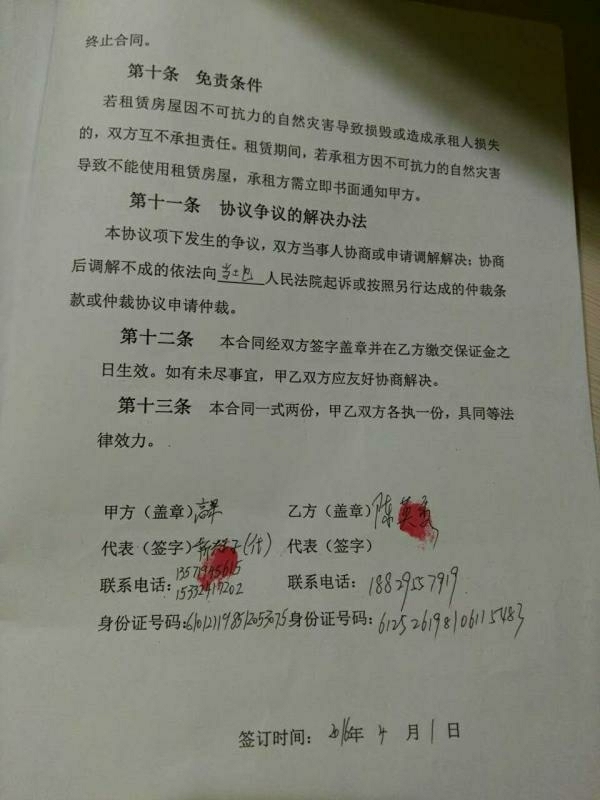 终止合同。
第十条 免责条件
若租赁房屋因不可抗力的自然灾害导致损毁或造成承租人损失
的，双方互不承担责任。租赁期间，若承租方因不可抗力的自然灾害
导致不能使用租赁房屋，承租方需立即书面通知甲方。
第十一条 协议争议的解决办法
本协议项下发生的争议，双方当事人协商或申请调解解决；协商
后调解不成的依法向 人民法院起诉或按照另行达成的仲裁条
款或仲裁协议申请仲裁。
第十二条 本合同经双方签字盖章并在乙方缴交保证金之
日生效。如有未尽事宜，甲乙双方应友好协商解决。
第十三条 本合同一式两份，甲乙双方各执一份，具同等法
律效力。
甲方（盖章） 乙方（盖章）陈英
代表（签字） (代) 代表（签字）
联系电话： 15332417202 联系电话： 18829557919
身份证号码: 身份证号码: 612526198106115483
签订时间： 2016年 4 月 1 日